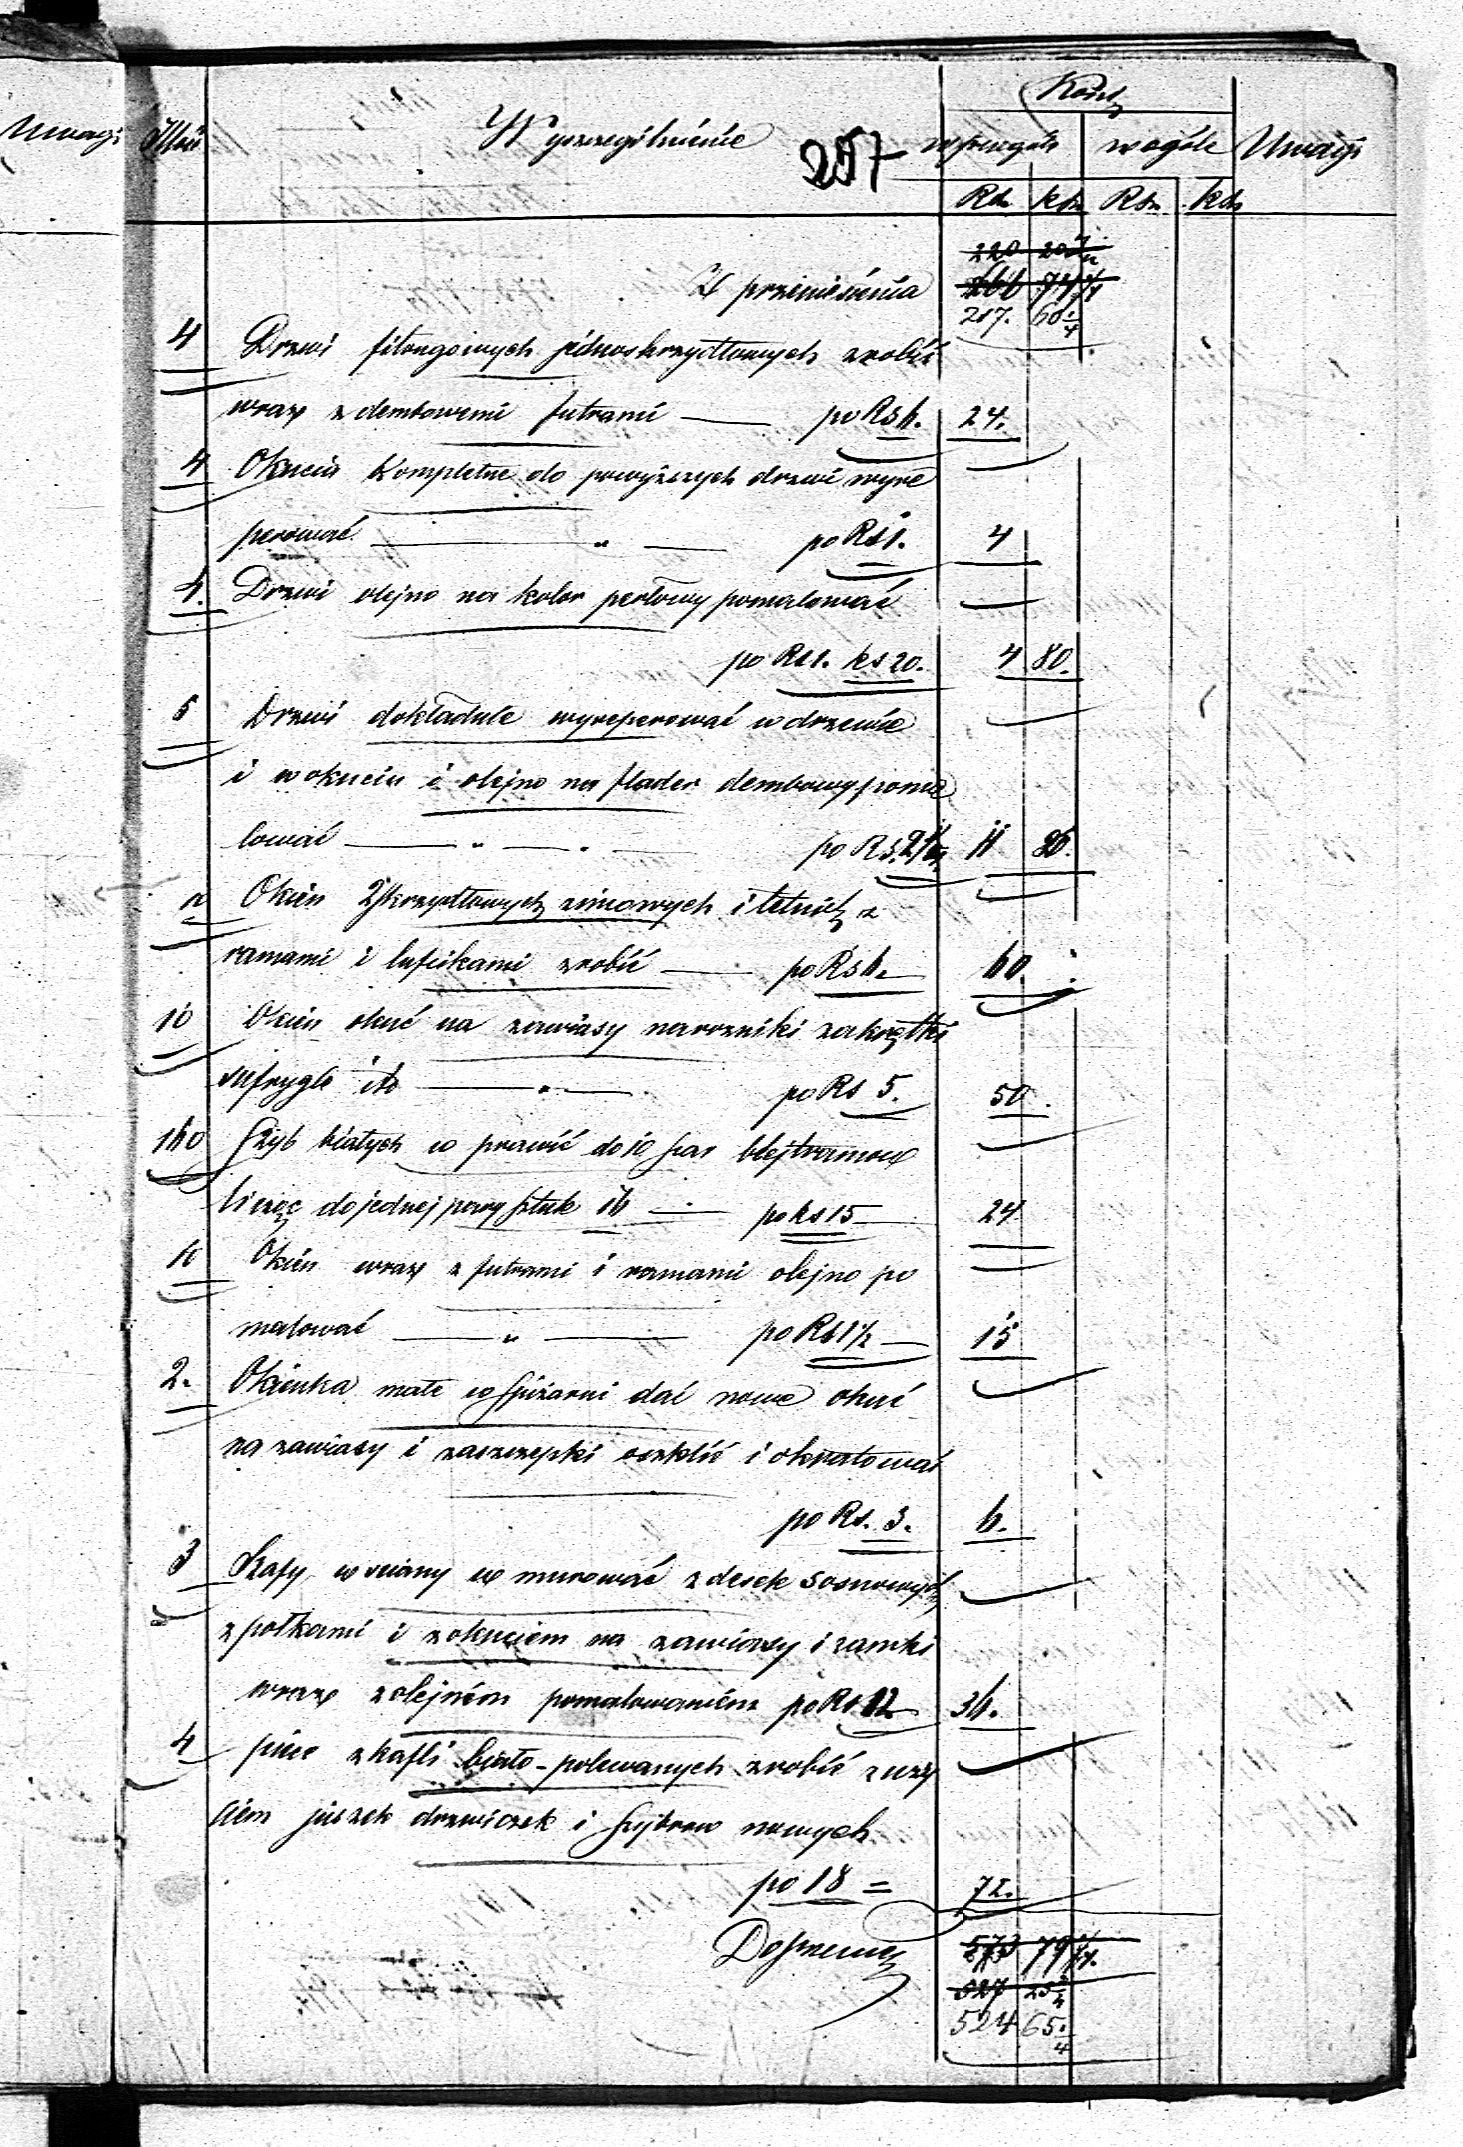 Koszt
Uwagi Ilość Wyszczególnienie 257 w szczególe w ogóle Uwagi
Rs. ks. Rs. ks.
220 20
Z przeniesienia 266 74
217. 60 1/4
4 Drzwi filongowych jednoskrzydłowych zrobić
wraz z dembowemi futrami — po Rs 6. 24.
4 Okucia kompletne do powyższych drzwi wyre
perować — „ — po Rs 1. 4
4. Drzwi olejno na kolor perłowy pomalować
po Rs 1. ks 20. 4 80.
5 Drzwi dokładnie wyreperować w drzewie
i w okuciu i olejno na flader dembowy poma
lować — „ — „ — po Rs. 11
Okien 2skrzydłowych zimowych i letnich z
ramami i lufcikami zrobić — po Rs 6. 60.
10 Okien okuć na zawiasy narożniki zakrętki
sufrygle itd — „ — po Rs 5. 50.
160 Szyb białych w prawić do 10 par blejtramow
licząc do jednej pary sztuk 16 — po ks 15 — 24
10 Okien wraz z futrami i ramami olejno po
malować — „ — po Rs 1 1/2 — 15
2. Okienka małe w spiżarni dać nowe okuć
na zawiasy i zaszczepki oszklić i okratować
po Rs. 3. 6.
3 Szafy w sciany w murować z desek sosnowych
z połkami i z okuciem na zawiasy i zamki
wraz z olejnem pomalowaniem po Rs 12 36.
4 piece z kafli biało-polewanych zrobić z uży
ciem juszek drzwiczek i szybrow nowych
po 18 = 72.
Do przenies 573 79
527 25
524 65 1/4